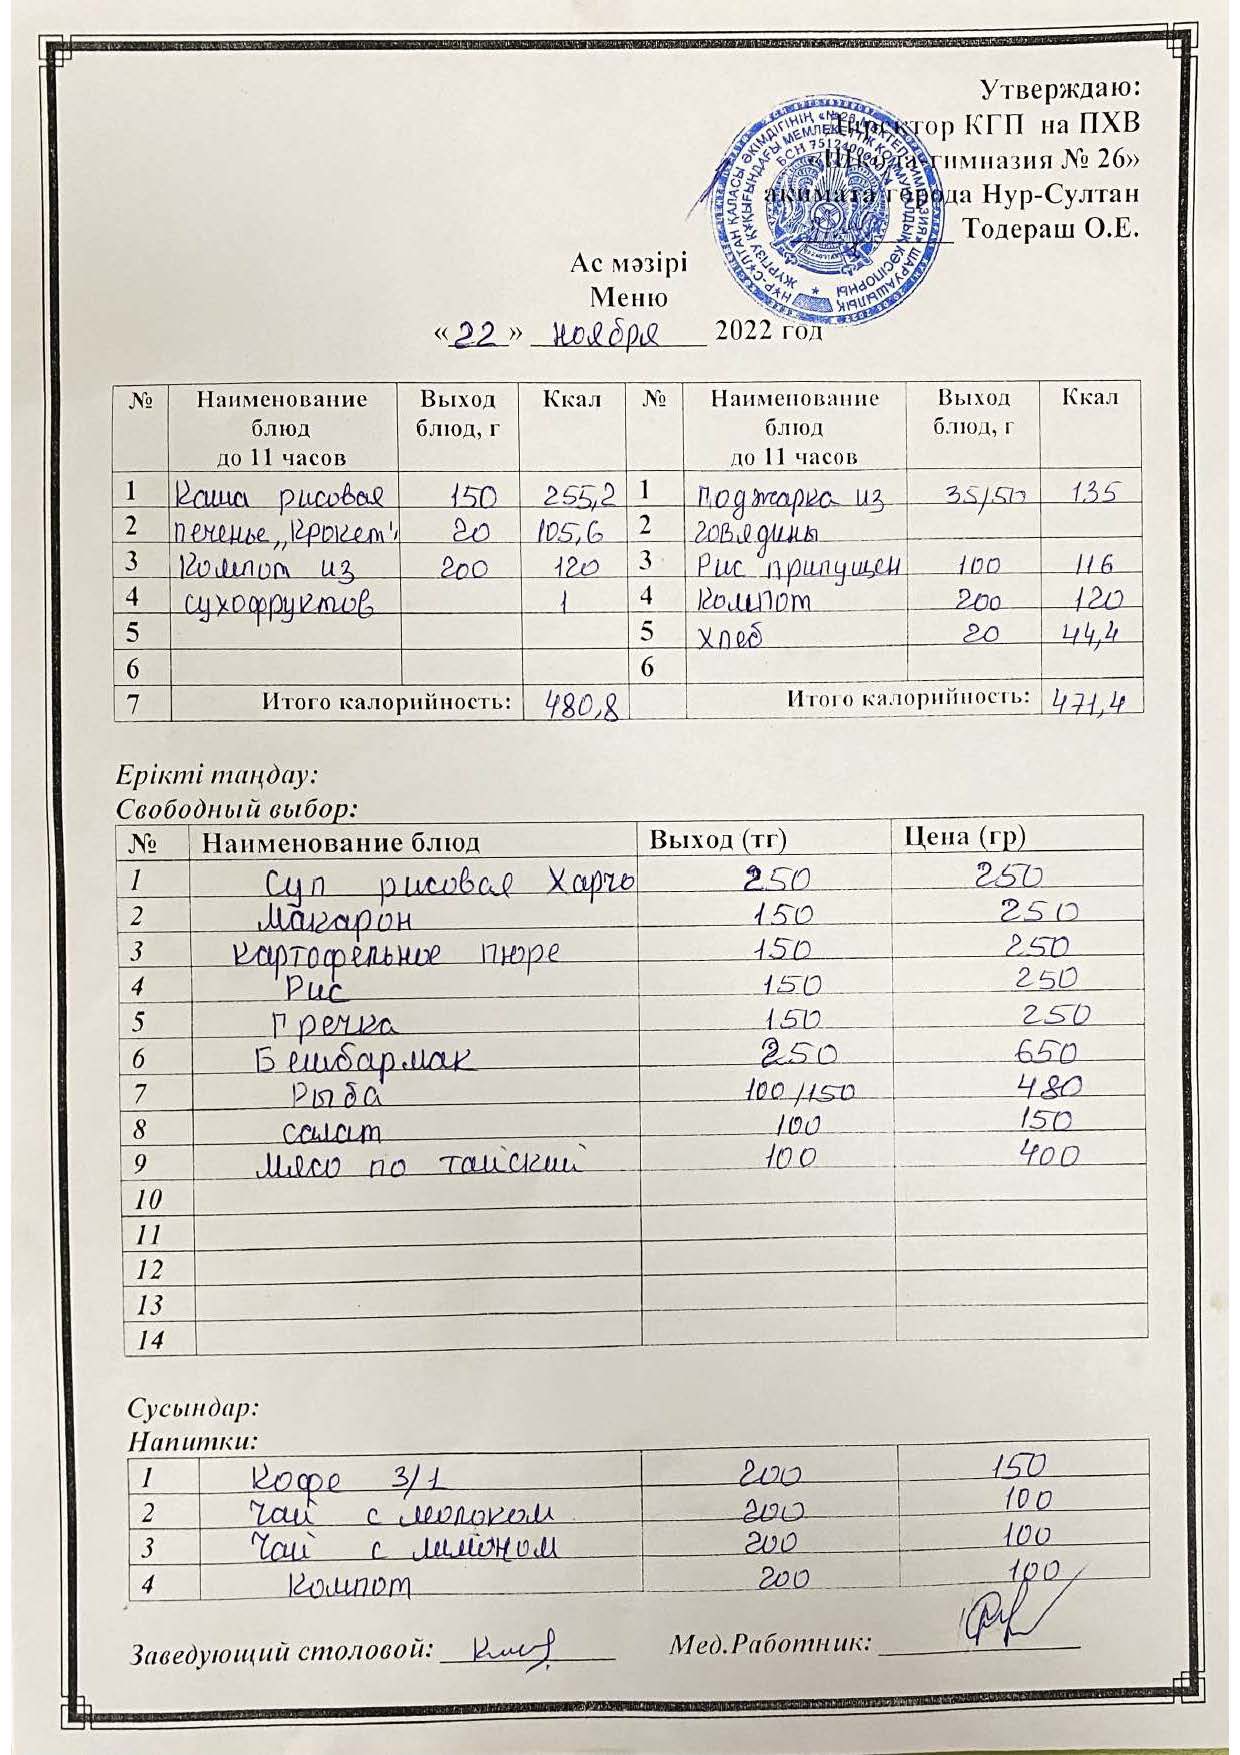 Утверждаю:
Директор КГП на ПХВ
«Школа-гимназия № 26»
акимата города Нур-Султан
Тодераш О.Е.
Ас мәзірі
Меню
«22» ноября 2022 год
№ Наименование блюд до 11 часов Выход блюд, г Ккал № Наименование блюд до 11 часов Выход блюд, г Ккал
1 Каша рисовая 150 255,2 1 Поджарка из 35/50 135
2 печенье „Крокет" 20 105,6 2 говядины
3 Компот из 200 120 3 Рис припущен 100 116
4 сухофруктов 1 4 Компот 200 120
5 5 хлеб 20 44,4
6 6
7 Итого калорийность: 480,8 Итого калорийность: 471,4
Ерікті таңдау:
Свободный выбор:
№ Наименование блюд Выход (тг) Цена (гр)
1 Суп рисовая Харчо 250 250
2 Макарон 150 250
3 Картофельное пюре 150 250
4 Рис 150 250
5 Гречка 150 250
6 Бешбармак 250 650
7 Рыба 100/150 480
8 салат 100 150
9 Мясо по тайский 100 400
10
11
12
13
14
Сусындар:
Напитки:
1 Кофе 3/1 200 150
2 Чай с молоком 200 100
3 Чай с лимоном 200 100
4 Компот 200 100
Заведующий столовой: Мед.Работник: